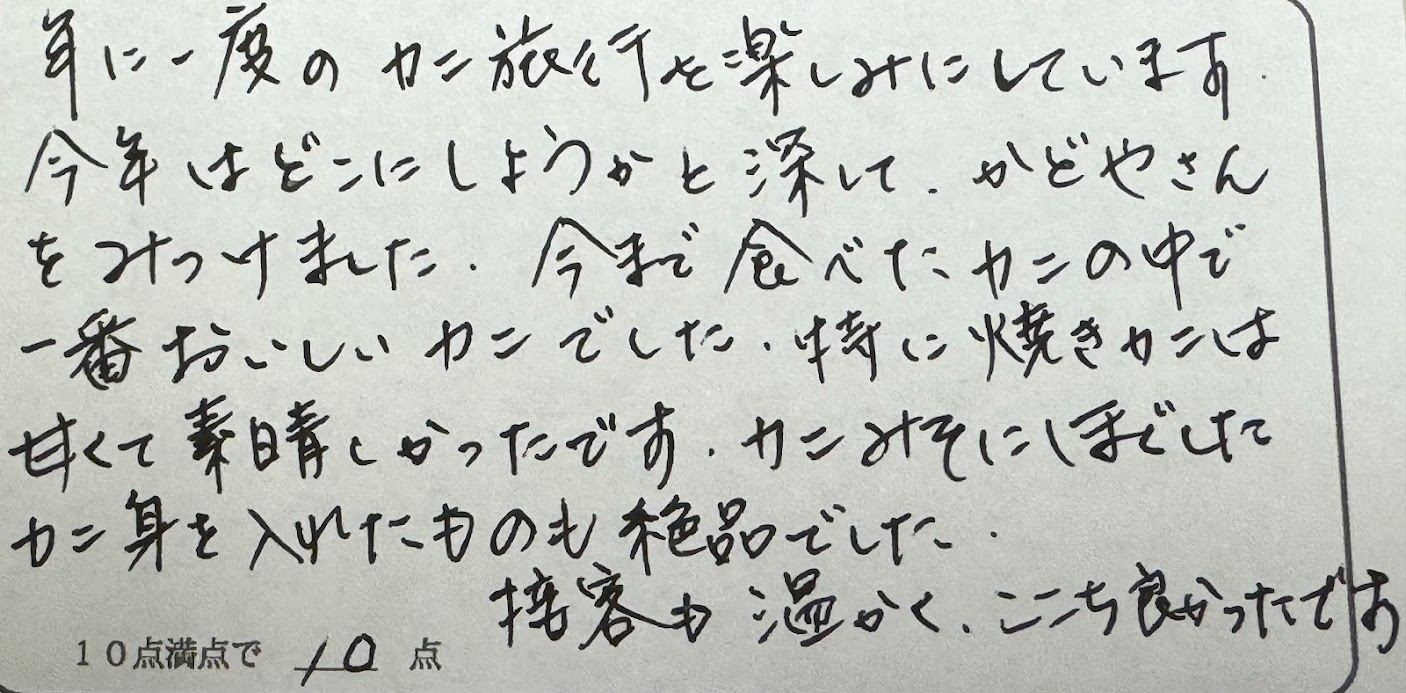 年に一度のカニ旅行を楽しみにしています.
今年はどこにしようかと深して、かどやさん
をみつけました. 今まで食べたカニの中で
一番おいしいカニでした. 特に焼きカニは
甘くて素晴しかったです. カニみそにほぐした
カニ身を入れたものも絶品でした.
接客も温かく、ここち良かったです
10点満点で 10 点